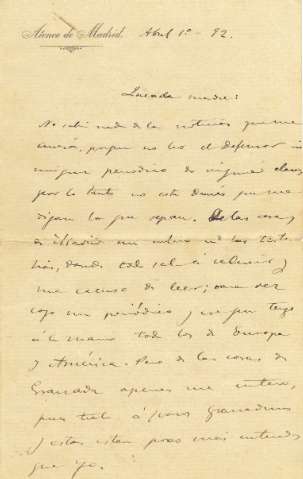 Ateneo de Madrid. Abril 1º - 92.
Querida madre:
No sabía nada de las noticias que me
da, porque no leo el defensor ni
ningún periódico de ninguna clase,
por lo tanto no está demás que me
digan lo que sepan. De las cosas
de
donde á y
me excuso de leer; rara vez
cojo un periódico y eso que tengo
á la mano todos los de Europa
y América. Pero de las cosas de
Granada apenas me entero,
pues trato á pocos Granadinos
y estos están poco más enterados
que yo.